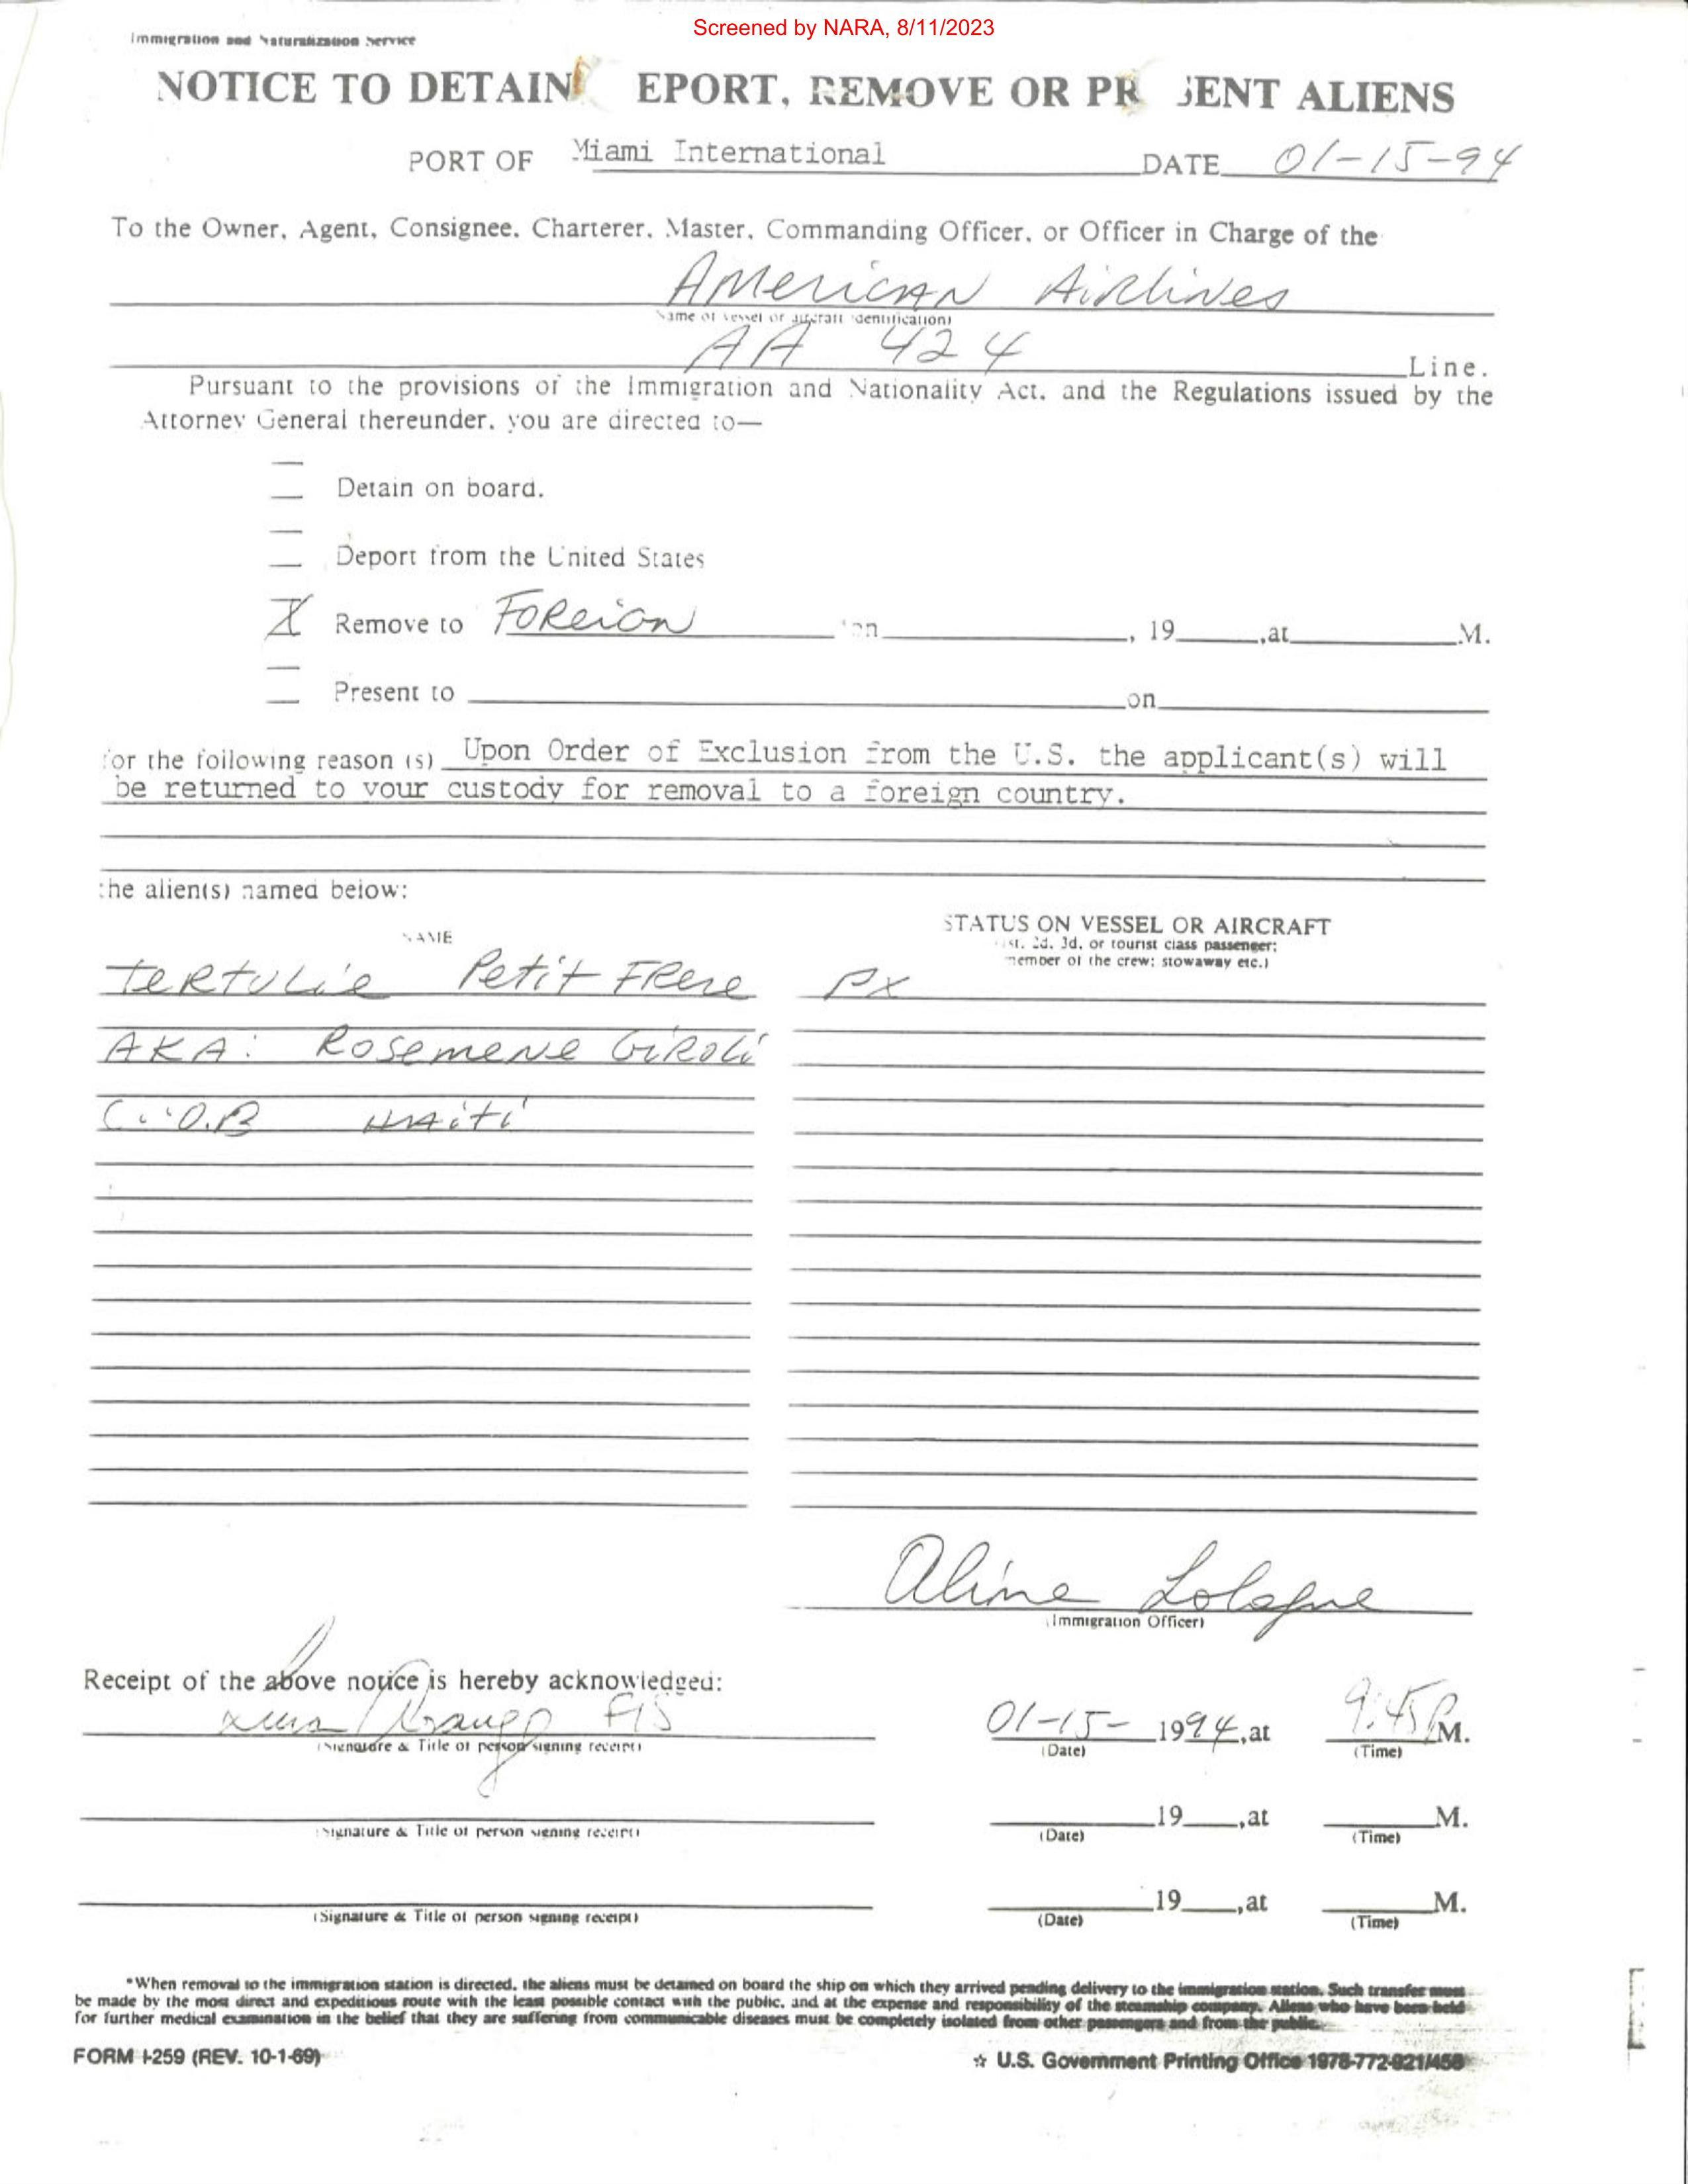 Screened by NARA, 8/11/2023
Immigration and Naturalization Service
NOTICE TO DETAIN EPORT, REMOVE OR PR SENT ALIENS
PORT OF Miami International DATE 01-15-94
To the Owner, Agent, Consignee, Charterer, Master, Commanding Officer, or Officer in Charge of the
American Airlines
(Name of vessel or aircraft identification)
AA 424 Line.
Pursuant to the provisions of the Immigration and Nationality Act, and the Regulations issued by the
Attorney General thereunder, you are directed to—
Detain on board.
Deport from the United States
X Remove to Foreign *on , 19 ,at M.
Present to on
for the following reason (s) Upon Order of Exclusion from the U.S. the applicant(s) will
be returned to your custody for removal to a foreign country.
the alien(s) named below:
NAME STATUS ON VESSEL OR AIRCRAFT
(1st, 2d, 3d, or tourist class passenger;
member of the crew; stowaway etc.)
Tertulie Petit Frere PX
AKA: Rosemene Giroli
C.O.B Haiti
Aline
(Immigration Officer)
Receipt of the above notice is hereby acknowledged:
01-15- 1994,at 9:45 PM.
(Signature & Title of person signing receipt) (Date) (Time)
19 ,at M.
(Signature & Title of person signing receipt) (Date) (Time)
19 ,at M.
(Signature & Title of person signing receipt) (Date) (Time)
*When removal to the immigration station is directed, the aliens must be detained on board the ship on which they arrived pending delivery to the immigration station. Such transfer must
be made by the most direct and expeditious route with the least possible contact with the public, and at the expense and responsibility of the steamship company. Aliens who have been held
for further medical examination in the belief that they are suffering from communicable diseases must be completely isolated from other passengers and from the public.
FORM I-259 (REV. 10-1-69) ☆ U.S. Government Printing Office 1978-772-921/458